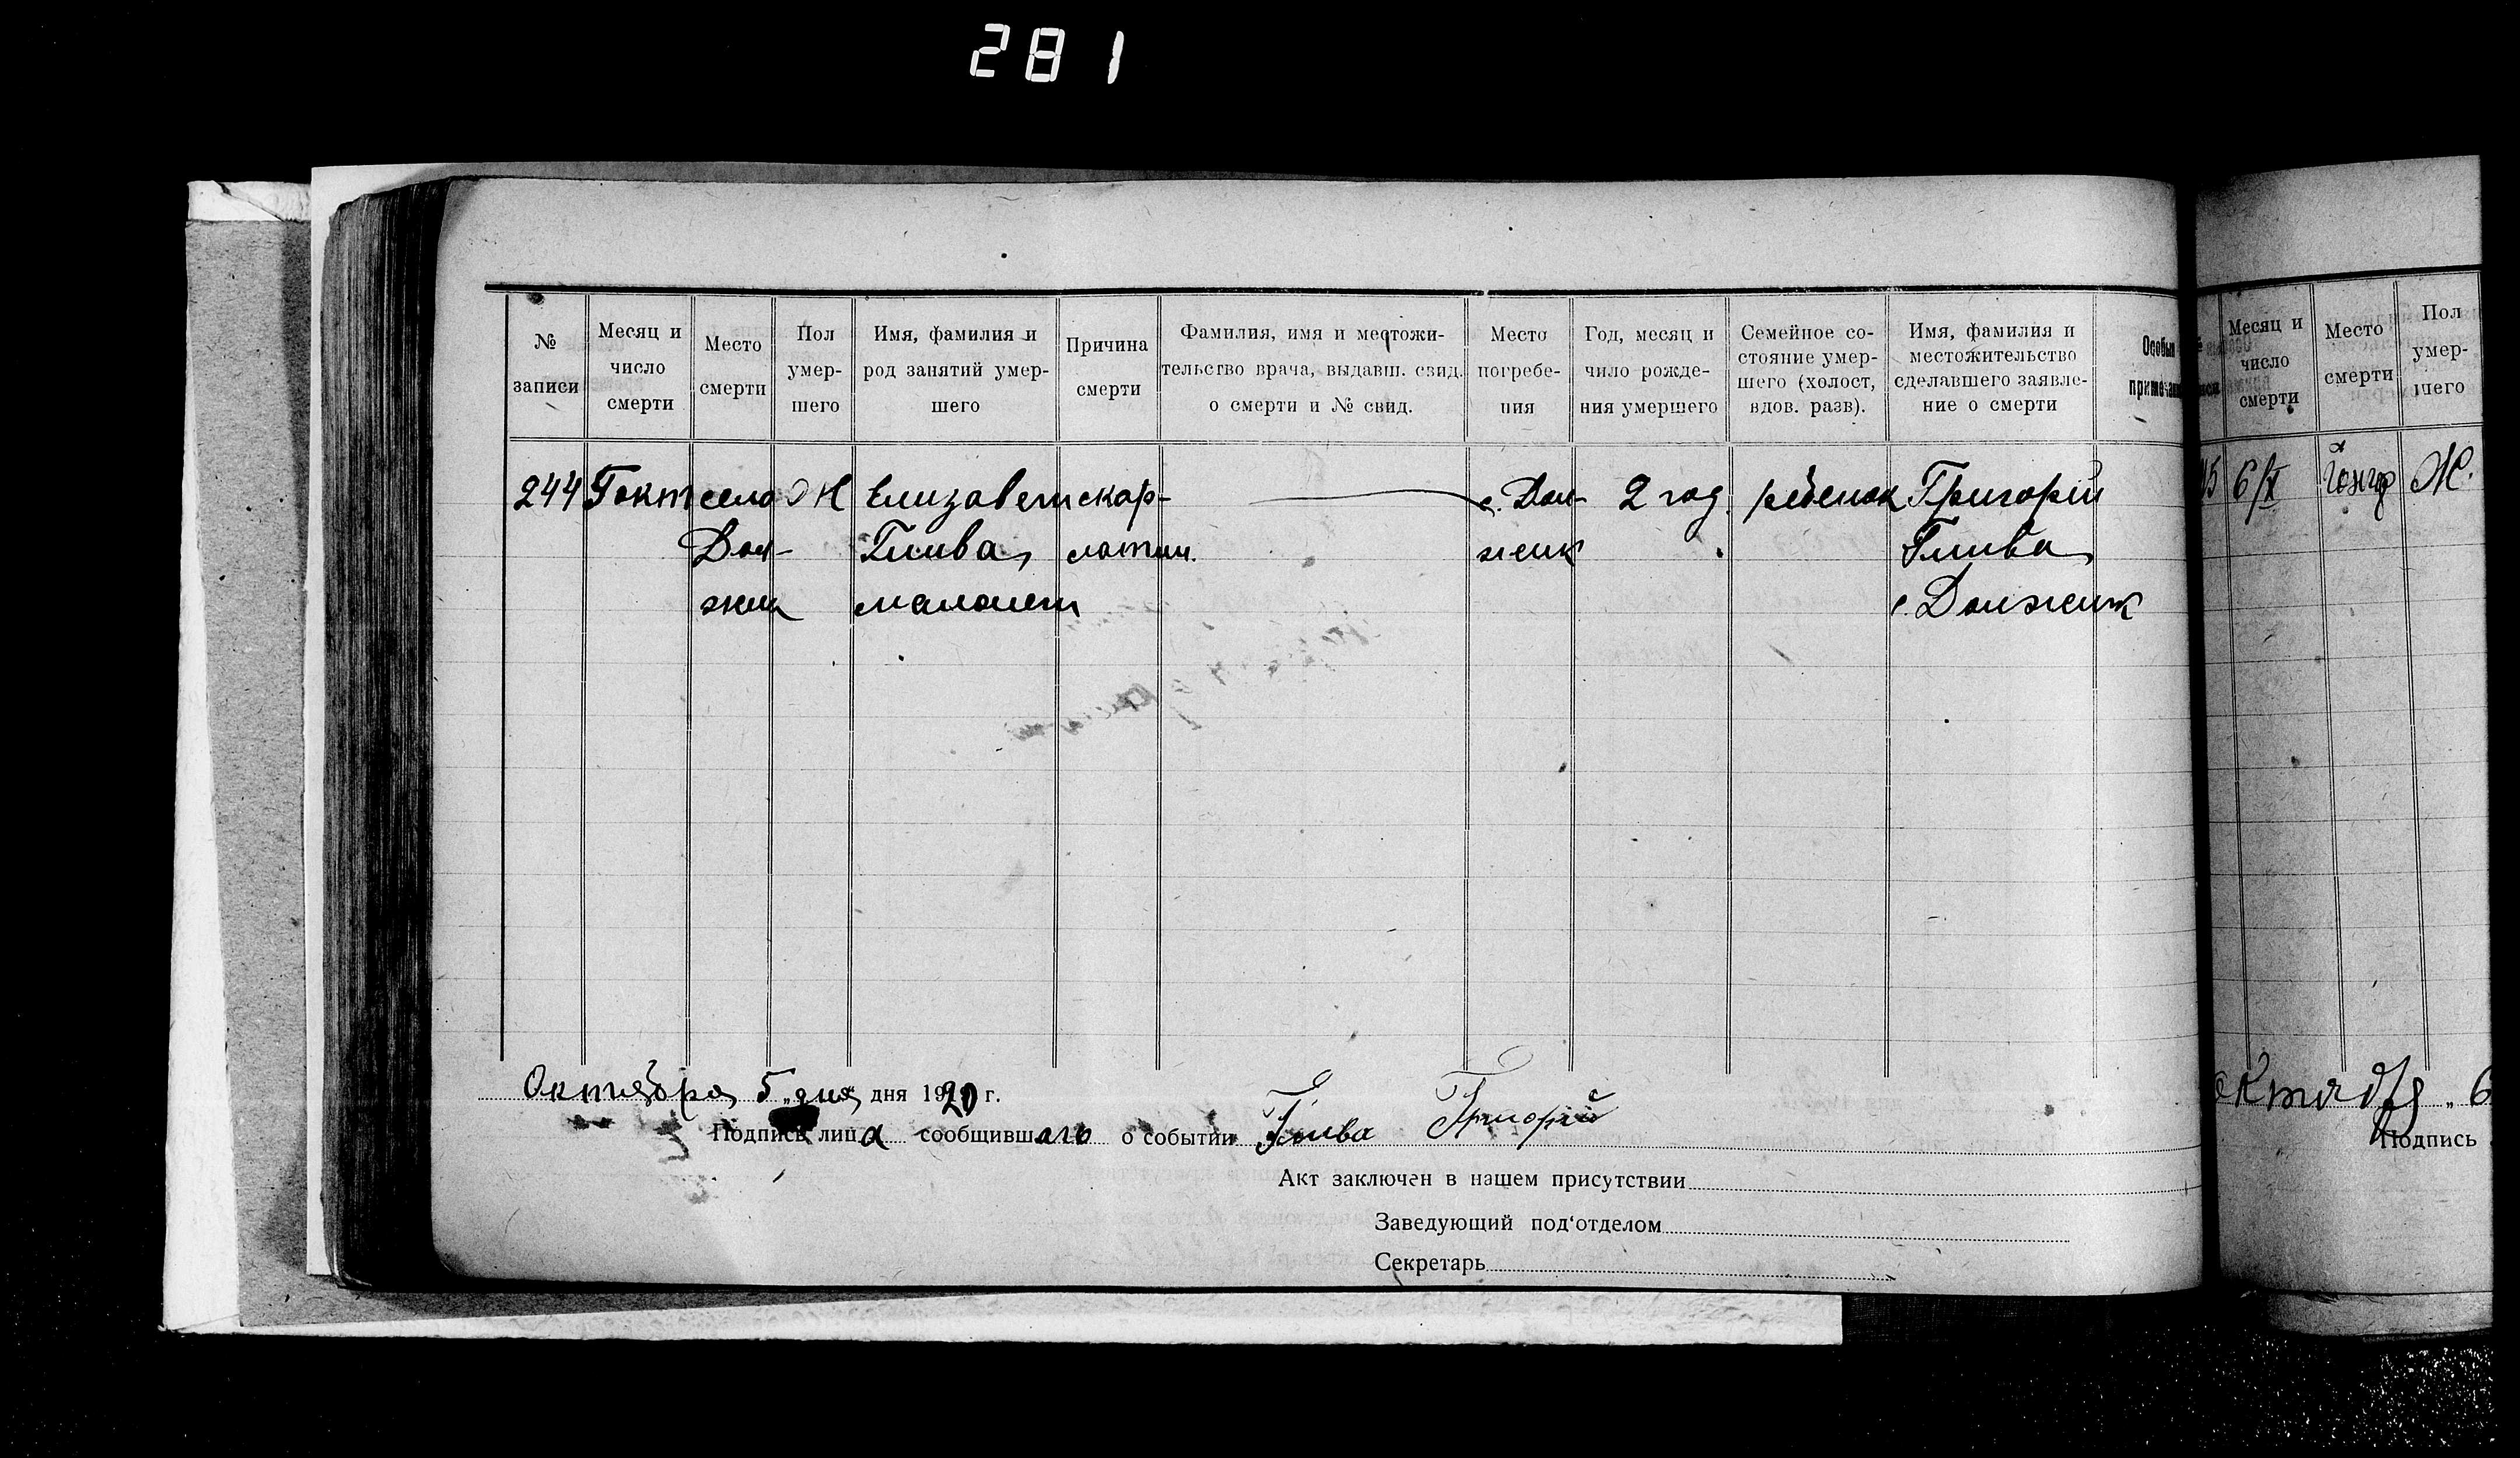 281
№ записи
Месяц и число смерти
Место смерти
Пол умер-шего
Имя, фамилия и род занятий умер-шего
Причина смерти
Фамилия, имя и местожи-тельство врача, выдавш. свид. о смерти и № свид.
Место погребе-ния
Год, месяц и чило рожде-ния умершего
Семейное со-стояние умер-шего (холост, вдов. разв).
Имя, фамилия и местожительство сделавшего заявле-ние о смерти
Особыя
244 5 окт село Ж Елизавет скар- с. Дол- 2 год. ребенок Григорій
Дол- Глива латин. женк Глива
жик малолет с. Должик
Октября 5 дня дня 1920 г.
Подпись лица сообщившаго о событии Глива Григорій
Акт заключен в нашем присутствии
Заведующий под‘отделом
Секретарь
Месяц и число смерти
Место смерти
Пол умер-шего
6/X Ж.
октября „ 6
Подпись